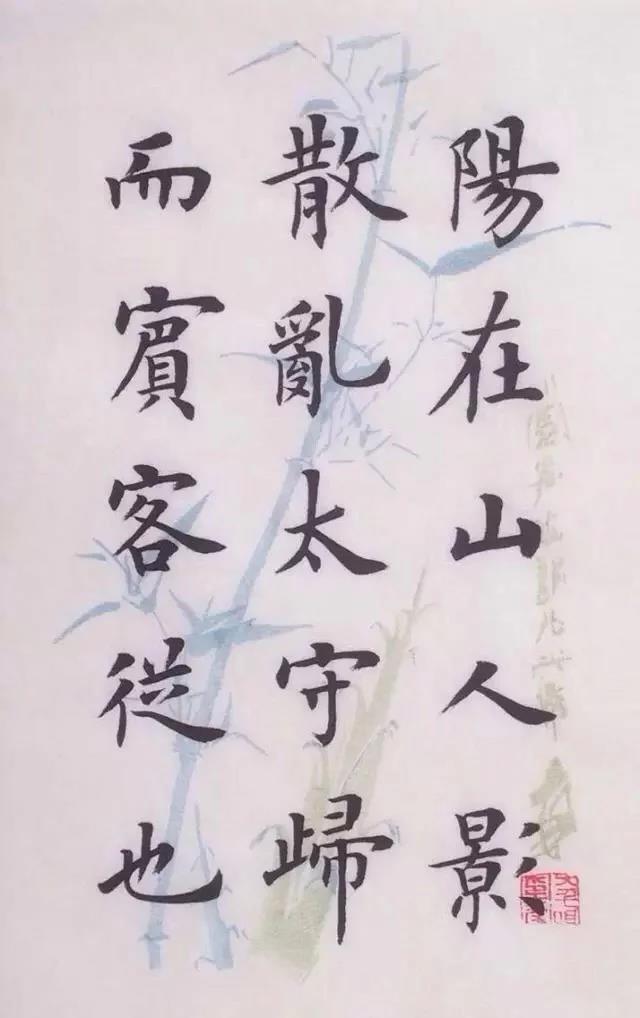 陽在山人影
散亂太守歸
而賓客從也